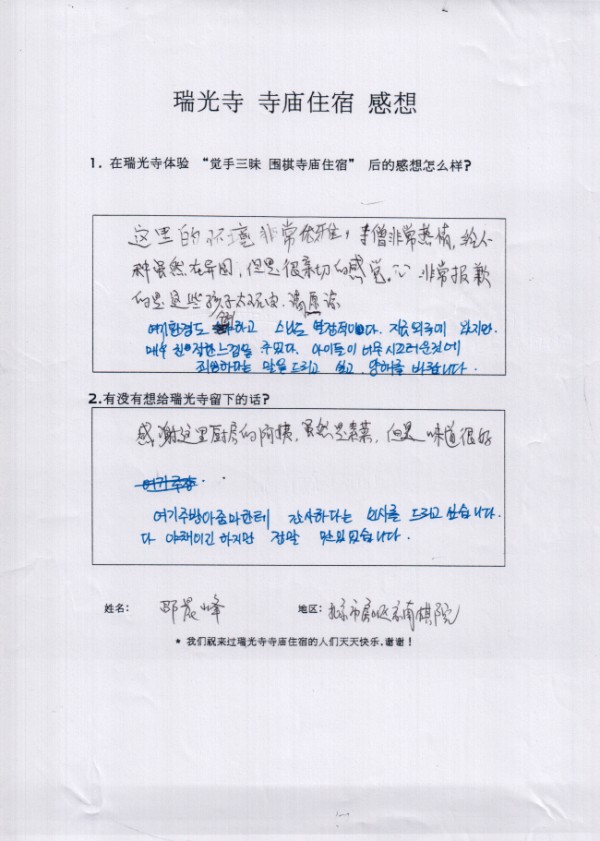 瑞光寺 寺庙住宿 感想
1. 在瑞光寺体验 “觉手三昧 围棋寺庙住宿” 后的感想怎么样?
这里的环境非常优雅，寺僧非常热情，给人
种虽然在异国，但是很亲切的感觉。 非常抱歉
的是这些孩子太 请原谅
여기환경도 하고 스님도 열정적이다. 지금 외국에 왔지만.
매우 친절한느낌을 주었다. 아이들이 너무 시끄러운것에
죄송하다는 말을 드리고 싶고. 양해를 바랍니다.
2.有没有想给瑞光寺留下的话?
感谢这里厨房的阿姨，虽然是素菜，但是味道很好
여기주방아줌마한테 감사하다는 인사를 드리고 싶습니다.
다 야채이긴 하지만 정말 맛있었습니다.
姓名: 邵晨峰 地区: 北京市 京南棋院
* 我们祝来过瑞光寺寺庙住宿的人们天天快乐,谢谢!